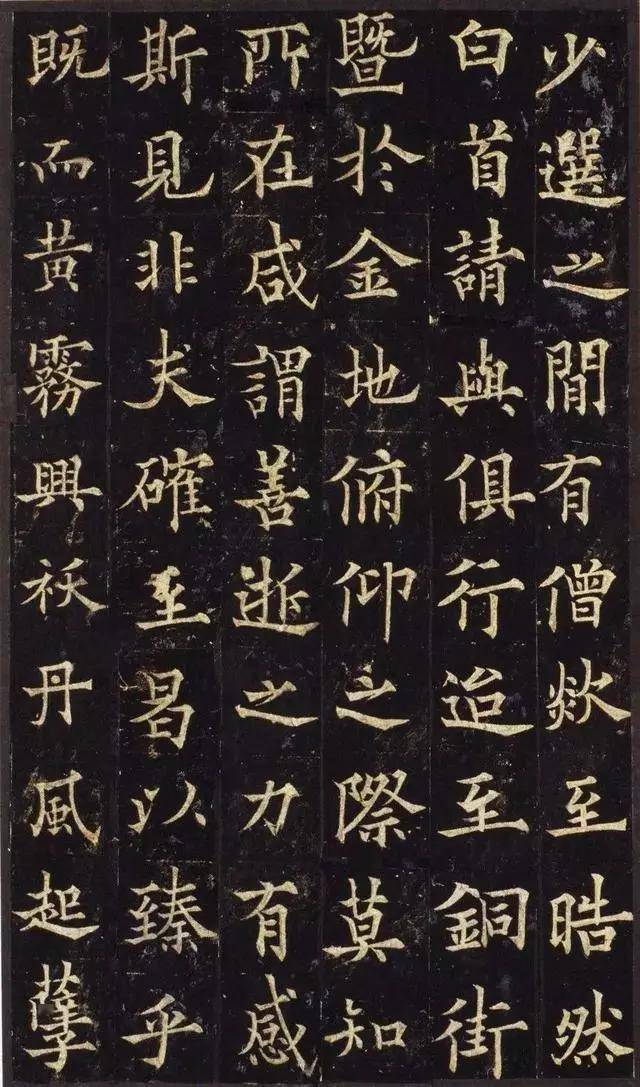 少選之間有僧欻至晧然
白首請與俱行迨至銅街
暨於金地俯仰之際莫知
所在咸謂善逝之力有感
斯見非夫確至曷以臻乎
既而黃霧興祅丹風起孽